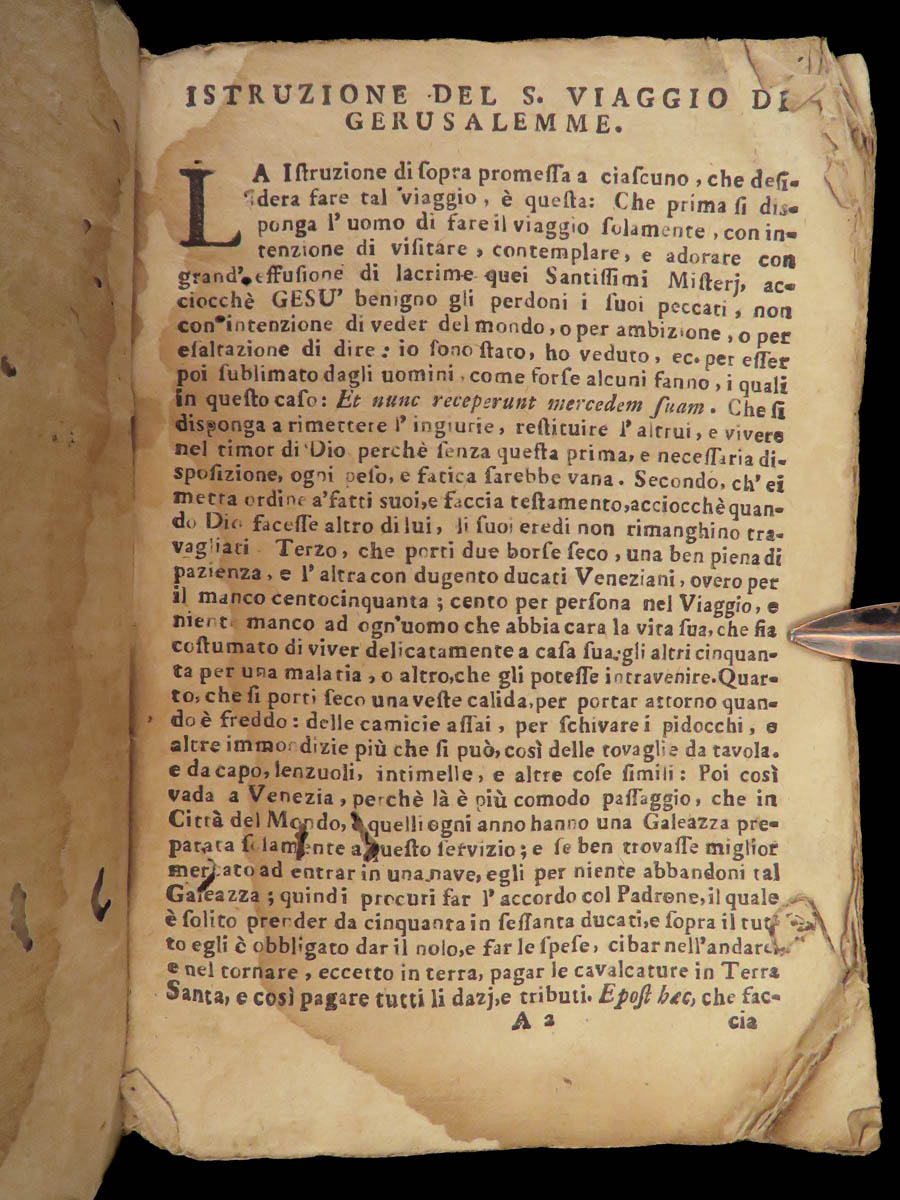 ISTRUZIONE DEL S. VIAGGIO DI
GERUSALEMME.
LA Iſtruzione di ſopra promeſſa a ciaſcuno, che deſi-
dera fare tal viaggio, è queſta: Che prima ſi diſ-
ponga l'uomo di fare il viaggio ſolamente, con in-
tenzione di viſitare, contemplare, e adorare con
grand' effuſione di lacrime quei Santiſſimi Miſterj, ac-
ciocchè GESU' benigno gli perdoni i ſuoi peccati, non
con intenzione di veder del mondo, o per ambizione, o per
eſaltazione di dire: io ſono ſtato, ho veduto, ec. per eſſer
poi ſublimato dagli uomini, come forſe alcuni fanno, i quali
in queſto caſo: Et nunc receperunt mercedem ſuam. Che ſi
diſponga a rimettere l' ingiurie, reſtituire l' altrui, e vivere
nel timor di Dio perchè ſenza queſta prima, e neceſſaria di-
ſpoſizione, ogni peſo, e fatica ſarebbe vana. Secondo, ch' ei
metta ordine a' fatti ſuoi, e faccia teſtamento, acciocchè quan-
do Dio faceſſe altro di lui, li ſuoi eredi non rimanghino tra-
vagliati Terzo, che porti due borſe ſeco, una ben piena di
pazienza, e l' altra con dugento ducati Veneziani, overo per
il manco centocinquanta; cento per perſona nel Viaggio, e
niente manco ad ogn' uomo che abbia cara la vita ſua, che ſia
coſtumato di viver delicatamente a caſa ſua: gli altri cinquan-
ta per una malatia, o altro, che gli poteſſe intravenire. Quar-
to, che ſi porti ſeco una veſte calida, per portar attorno quan-
do è freddo: delle camicie aſſai, per ſchivare i pidocchi, e
altre immondizie più che ſi può, così delle tovaglie da tavola.
e da capo, lenzuoli, intimelle, e altre coſe ſimili: Poi così
vada a Venezia, perchè là è più comodo paſſaggio, che in
Città del Mondo, quelli ogni anno hanno una Galeazza pre-
parata ſolamente a queſto ſervizio; e ſe ben trovaſſe miglior
mercato ad entrar in una nave, egli per niente abbandoni tal
Galeazza; quindi procuri far l' accordo col Padrone, il quale
è ſolito prender da cinquanta in ſeſſanta ducati, e ſopra il tut-
to egli è obbligato dar il nolo, e far le ſpeſe, cibar nell' andare
e nel tornare, eccetto in terra, pagar le cavalcature in Terra
Santa, e così pagare tutti li dazj, e tributi. E post hæc, che fac-
A 2 cia